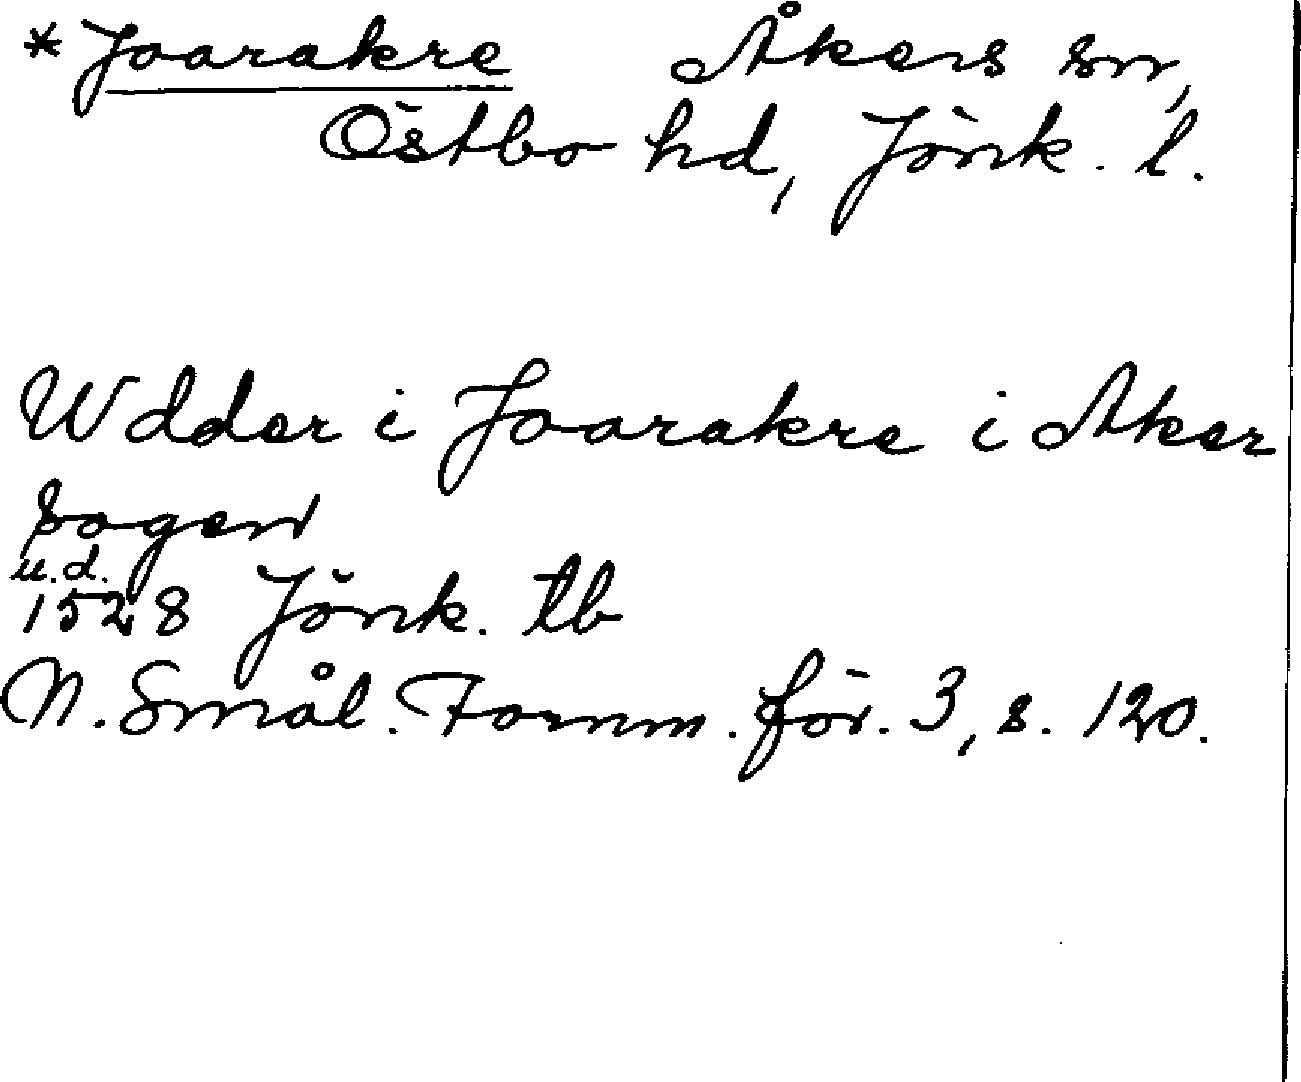 * Joarakre Åkers sn,
Östbo hd, Jönk. l.
Wdder i Joarakre i Aker
sogen
u.d.
1528 Jönk. tb
N. Smål. Fornm. för. 3, s. 120.